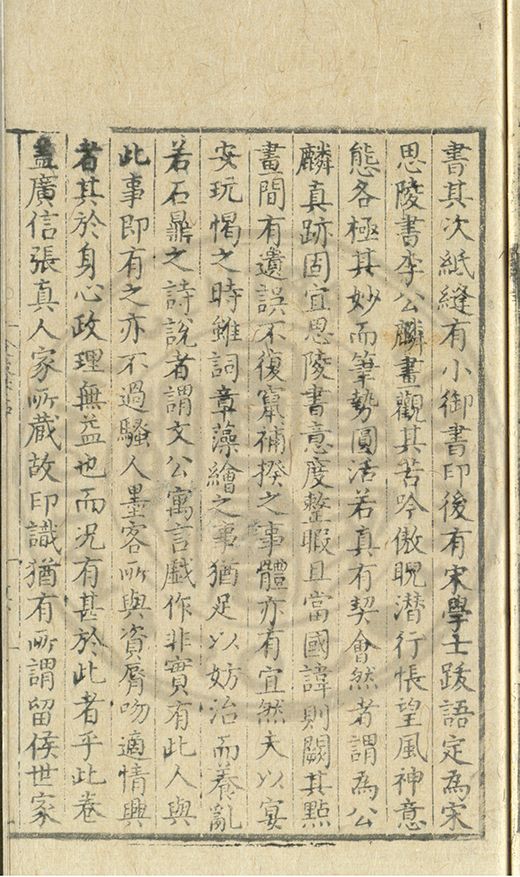 書其次紙縫有小御書印後有宋學士跋語定為宋
思陵書李公麟畫觀其苦吟傲睨潛行悵望風神意
態各極其妙而筆勢圓活若真有契會然者謂為公
麟真跡固宜思陵書意度整暇且當國諱則闕其點
畫間有遺誤不復竄補揆之事體亦有宜然夫以宴
安玩愒之時雖詞章藻繪之事猶足以妨治而養亂
若石鼎之詩說者謂文公寓言戲作非實有此人與
此事即有之亦不過騷人墨客所與資脣吻適情興
者其於身心政理無益也而况有甚於此者乎此卷
盖廣信張真人家所藏故印識猶有所謂留侯世家